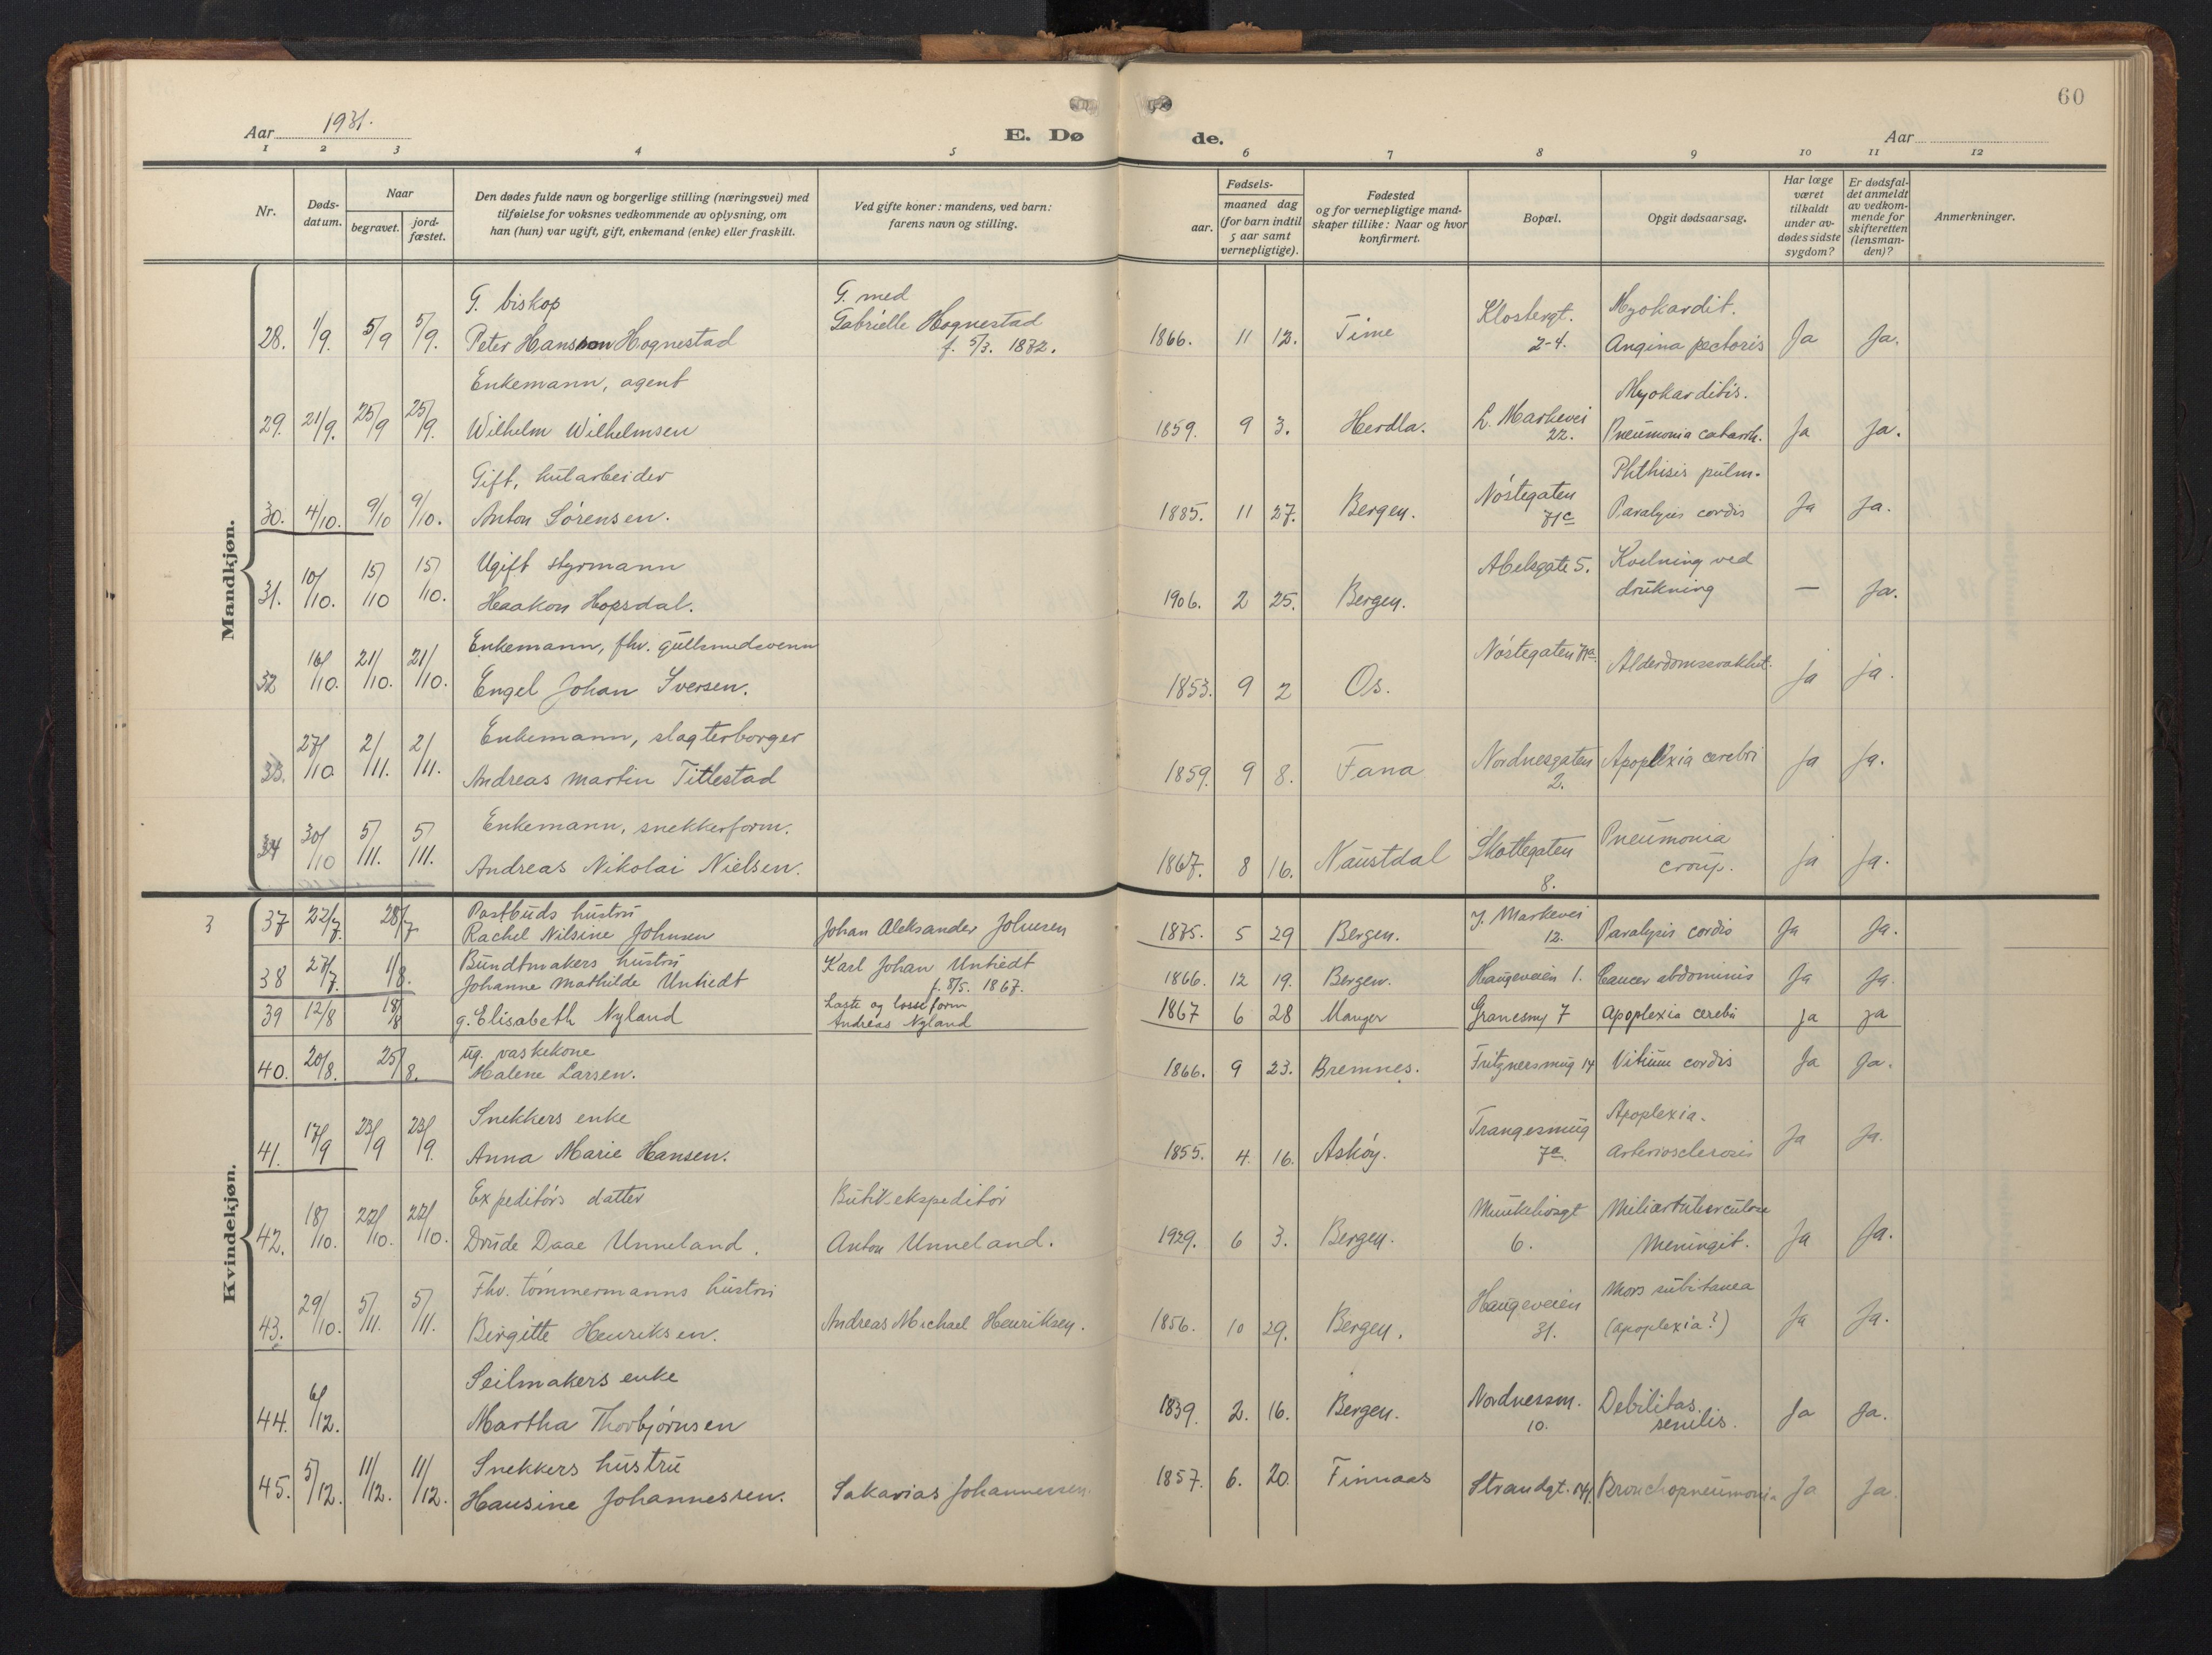 60
Aar 1931.
E. Dø de.
Aar
1 2 3 4 5 6 7 8 9 10 11 12
Nr.
Døds-
datum.
Naar
begravet.
jord-
fæstet.
Den dødes fulde navn og borgerlige stilling (næringsvei) med
tilføielse for voksnes vedkommende av oplysning, om
han (hun) var ugift, gift, enkemand (enke) eller fraskilt.
Ved gifte koner: mandens, ved barn:
farens navn og stilling.
Fødsels-
aar. maaned dag
(for barn indtil
5 aar samt
vernepligtige).
Fødested
og for vernepligtige mand-
skaper tillike: Naar og hvor
konfirmert.
Bopæl.
Opgit dødsaarsag.
Har læge
været
tilkaldt
under av-
dødes sidste
sygdom?
Er dødsfal-
det anmeldt
av vedkom-
mende for
skifteretten
(lensman-
den)?
Anmerkninger.
Mandkjøn.
G. biskop G. med Klostergt. Myokardit.
28. 1/9. 5/9 5/9. Peter Hansson Hognestad Gabrielle Hognestad 1866. 11 12. Time 2-4. Angina pectoris Ja Ja.
f. 5/3. 1872.
Enkemann, agent Myokarditis.
29. 21/9. 25/9 25/9. Wilhelm Wilhelmsen 1859. 9 3. Herdla. L. Markevei 22. Pneumonia catarrh. Ja Ja.
Gift, kularbeider Phthisis pulm.
30. 4/10. 9/10 9/10. Anton Sörensen. 1885. 11 27. Bergen. Nöstegaten 71c Paralysis cordis Ja Ja.
Ugift styrmann Abelsgate 5. Kvelning ved
31. 10/10. 15/10 15/10. Haakon Hopsdal. 1906. 2 25. Bergen. drukning — Ja.
Enkemann, fhv. gullsmedsvenn Nöstegaten 71a
32 16/10. 21/10. 21/10. Engel Johan Iversen. 1853. 9 2 Os. Alderdomssvakhet. Ja ja.
Enkemann, slagterborger
33. 27/10 2/11. 2/11. Andreas Martin Titlestad 1859. 9 8. Fana Nordnesgaten 2. Apoplexia cerebri Ja Ja.
Enkemann, snekkerform. Pneumonia
34 30/10 5/11. 5/11. Andreas Nikolai Nielsen. 1867. 8 16. Naustdal Skottegaten 8. croup. Ja Ja.
Kvindekjøn.
3
Postbuds hustru
37 22/7. 28/7 Rachel Nilsine Johnsen Johan Aleksander Johnsen 1875. 5 29 Bergen. Y. Markevei 12. Paralysis cordis Ja Ja.
Bundtmakers hustru Karl Johan Untiedt
38 27/7. 1/8. Johanne Mathilde Untiedt f. 8/5. 1867. 1866. 12 19. Bergen. Haugeveien 1. Cancer abdominis Ja Ja.
Laste og losseform
39 12/8 18/8 g. Elisabeth Nyland Andreas Nyland 1867 6 28 Manger Granesmg 7 Apoplexia cerebri ja ja
ug. vaskekone
40. 20/8. 25/8. Malene Larsen. 1866. 9 23. Bremnes. Fritznersmug 14 Vitium cordis Ja Ja.
Snekkers enke Apoplexia.
41. 17/9 23/9 23/9. Anna Marie Hansen. 1855. 4. 16. Asköy. Trangesmug 7a. Arteriosclerosis Ja Ja.
Expeditörs datter Butikekspeditör Miliærtuberculose
42. 18/10. 22/10. 22/10. Drude Daae Unneland. Anton Unneland. 1929. 6 3. Bergen. 6. Meningit. Ja Ja.
Fhv. tömmermanns hustru Mors subitanea
43. 29/10. 5/11. 5/11. Birgitte Henriksen. Andreas Michael Henriksen. 1856. 10 29. Bergen. Haugeveien 31. (apoplexia?) Ja Ja.
Seilmakers enke
44. 6/12. Martha Thorbjörnsen 1839. 2. 16. Bergen. Nordnessm. 10. Debilitas senilis. Ja Ja.
Snekkers hustru
45. 5/12. 11/12. 11/12. Hansine Johannessen. Sakarias Johannessen. 1857. 6. 20. Finnaas Strandgt. Bronchopneumonia Ja Ja.